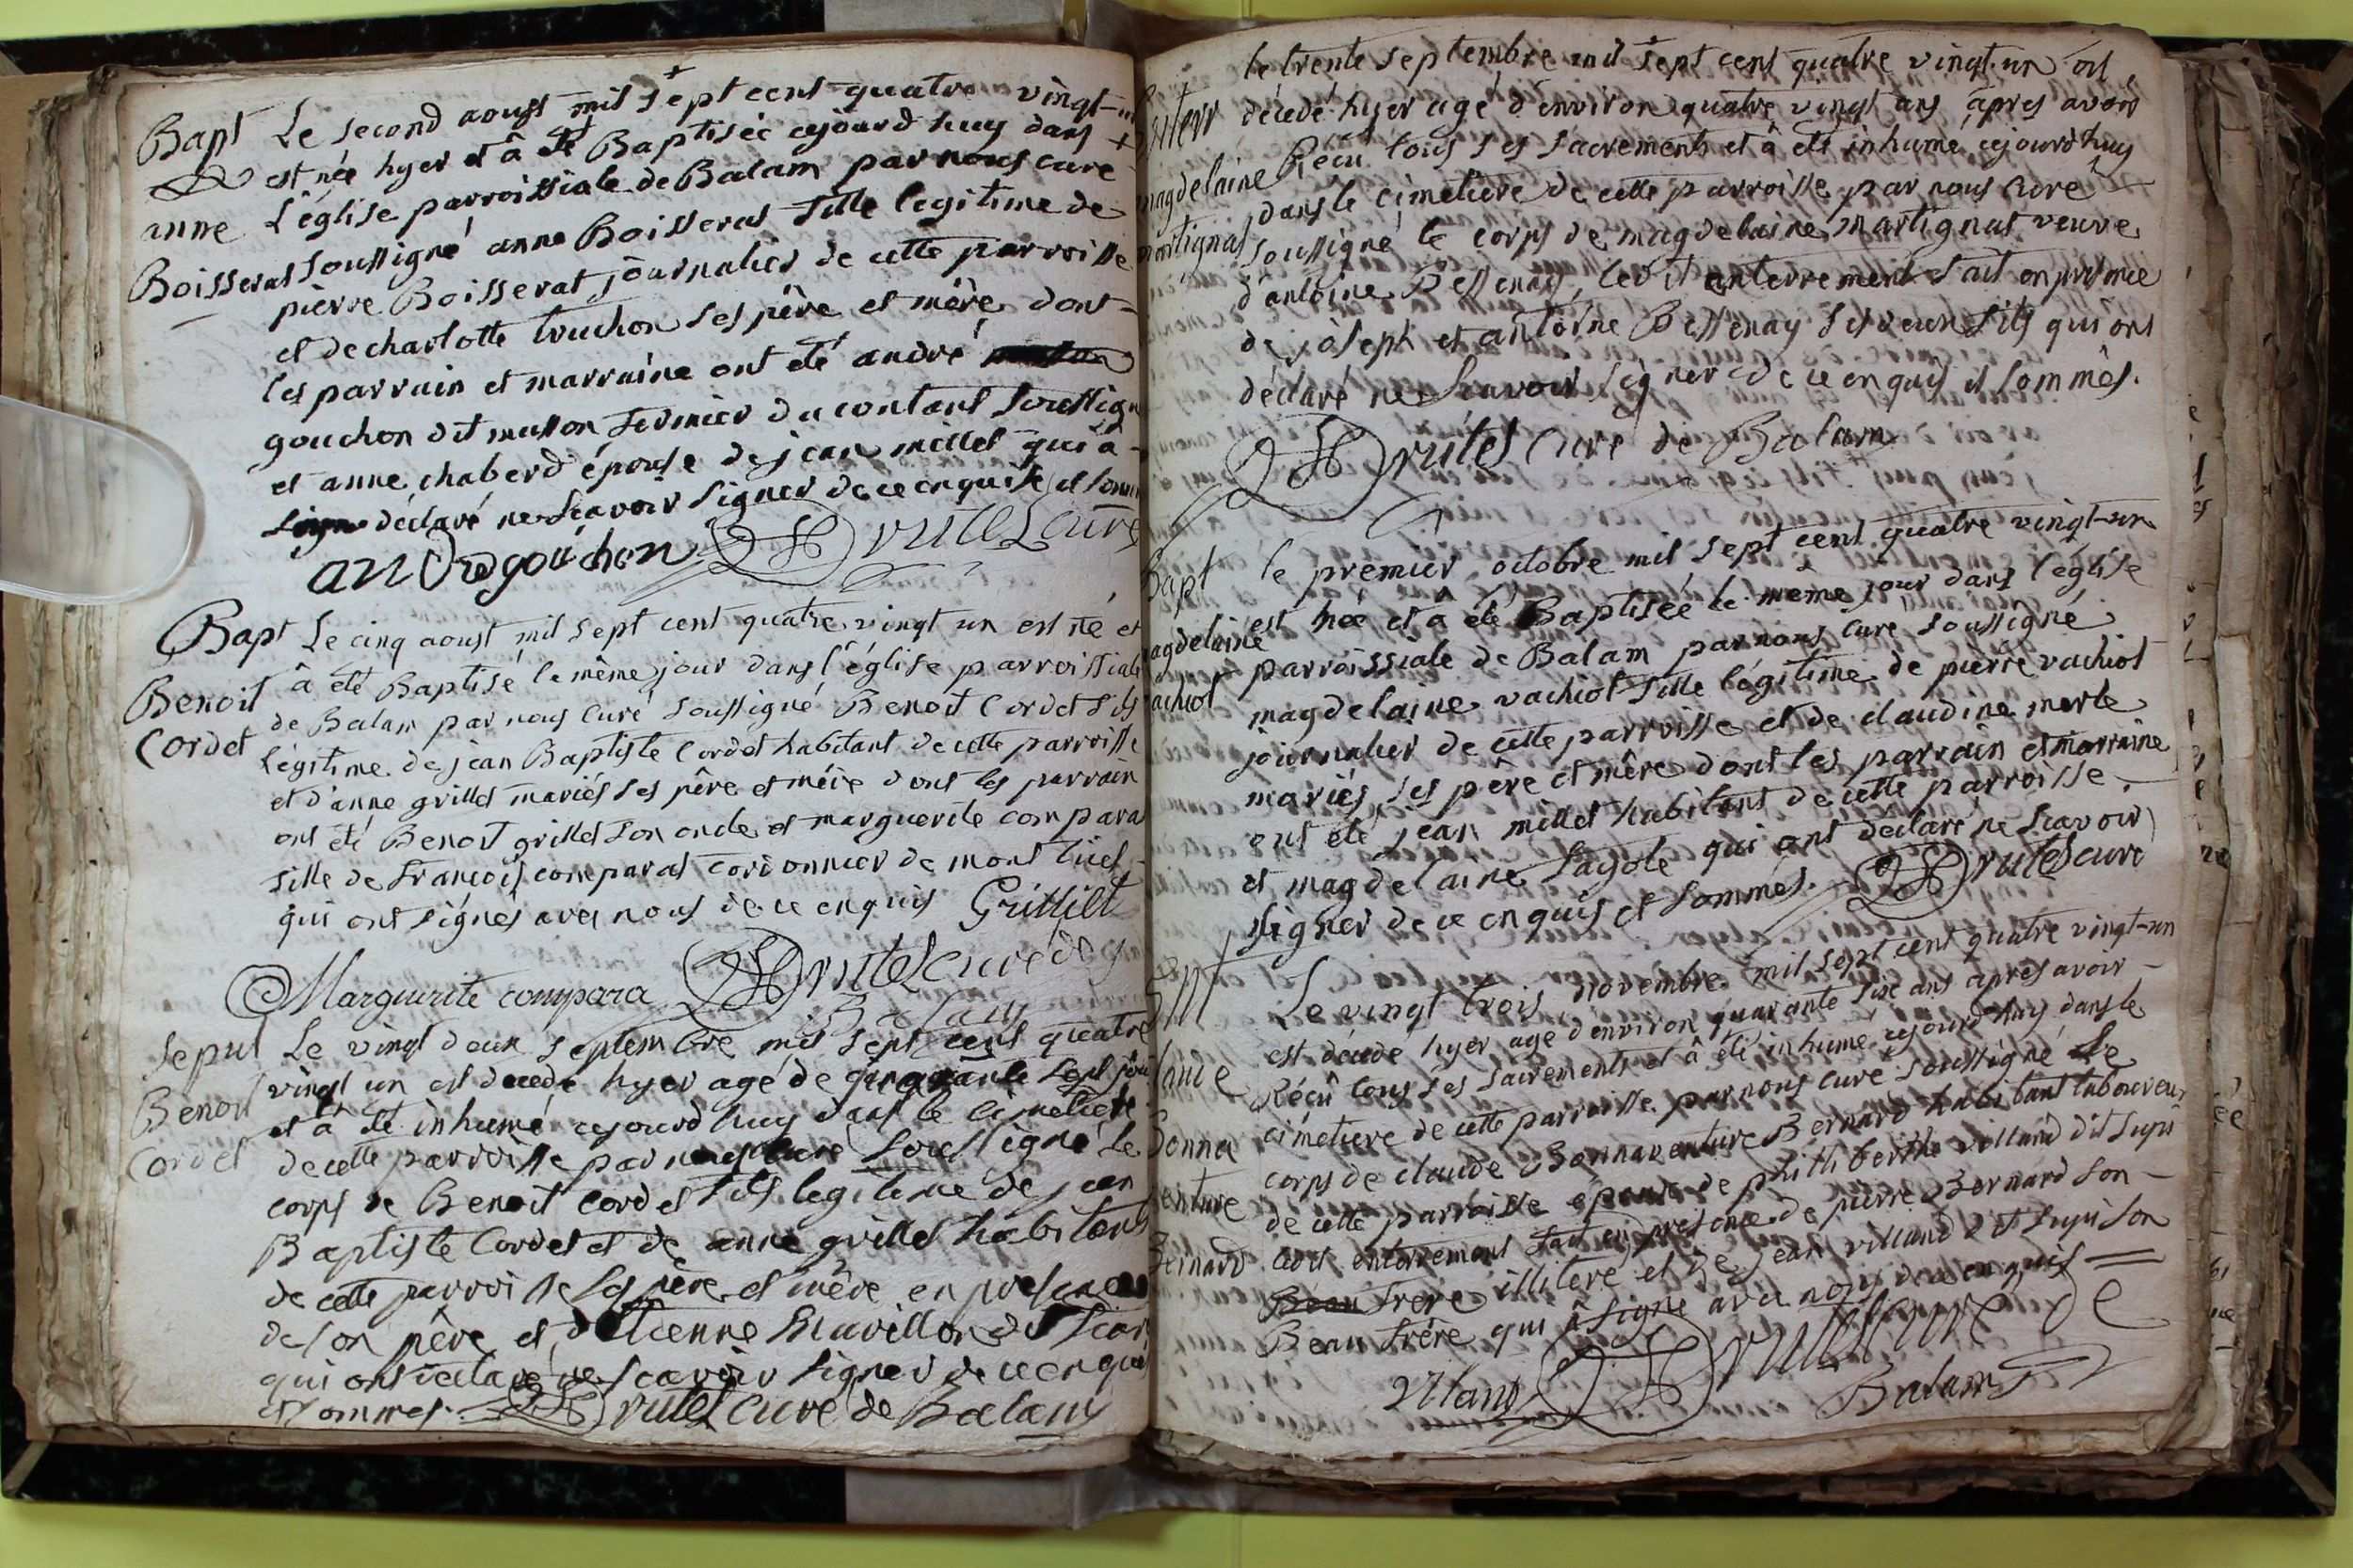 Bapt Le second aoust mil sept cent quatre vingt-un
est née hyer et â été Baptiséé cejourd'huy dans
anne L'église parroissiale de Balam par nous curé
Boisserat soussigné anne Boisserat fille legitime de
pierre Boisserat journalier de cette parroisse
et de charlotte truchon ses père et mère dont
les parrain et marraine ont été andré
gouchon dit musson fermier du contant soussigné
et anne chaberd épouse de jean millet qui â
déclaré ne scavoir signer de ce enquise et somm
andre gouchon Drutel curé
Bapt Le cinq aoust mil sept cent quatre vingt un est né et
â été Baptisé le même jour dans l'église parroissiale
Benoit de Balam par nous curé soussigné Benoit Cordet fils
Cordet Légitime de jean Baptiste Cordet habitant de cette parroisse
et d'anne grillet mariés ses père et mère dont les parrain
ont été Benoit grillet son oncle et marguerite compara
fille de François comparat cordonnier de mont luel
qui ont signés avec nous de ce enquis Grillilt
Marguerite compara Drutel curé de
Balam
Sepul Le vingt deux septembre mil sept cent quatre
vingt un est decedé hyer agé de quarante sept jour
Benoit et â été inhumé cejourd'huy dans le cimetiere
Cordet de cette parroisse par nous curé soussigné Le
corps de Benoit cordet fils legitime de jean
Baptiste Cordet et de anne grillet habitants
de cette parroisse ses père et mère en presence
de son père et d'Etienne
qui ont déclaré ne scavoir signer de ce enquis
et sommes. Drutel curé de Balam
le trente septembre mil sept cent quatre vingt-un est
décédé hyer agé d'environ quatre vingt ans après avoir
Réçû tous ses sacrements et â été inhumé cejourd'huy
magdelaine dans le cimetiere de cette parroisse par nous curé
martignat soussigné le corps de magdelaine martignat veuve
d'antoine Bessenay, ledit enterrement fait en présence
de joseph et antoine Bessenay ses deux fils qui ont
déclaré ne scavoir signer de ce enquis et sommés.
Drutel curé de Balam
Bapt le premier octobre mil sept cent quatre vingt-un
est née et a été Baptisée le même jour dans l'église
magdelaine parroissiale de Balam par nous curé soussigné
vachiot magdelaine vachiot fille légitime de pierre vachiot
journalier de cette parroisse et de claudine merle
mariés ses père et mère dont les parrain et marraine
ont été jean millet habitant de cette parroisse
et magdelaine Layole qui ont déclaré ne scavoir
signer de ce enquis et sommés. Drutel curé
Le vingt trois novembre mil sept cent quatre vingt-un
est décédé hyer agé d'environ quarante six ans après avoir
Réçû tous ses sacrements et â été inhumé cejourd'huy dans le
cimetiere de cette parroisse par nous curé soussigné Le
Bonna corps de claude Bonnaventure Bernard habitant laboureur
venture de cette parroisse époux de philliberthe villand dit
Bernard ledit enterrement fait en présence de pierre Bernard son
frère illitere et de jean villand dit son
Beau frère qui â signé avec nous de ce enquis
Viland Drutel curé de
Balam